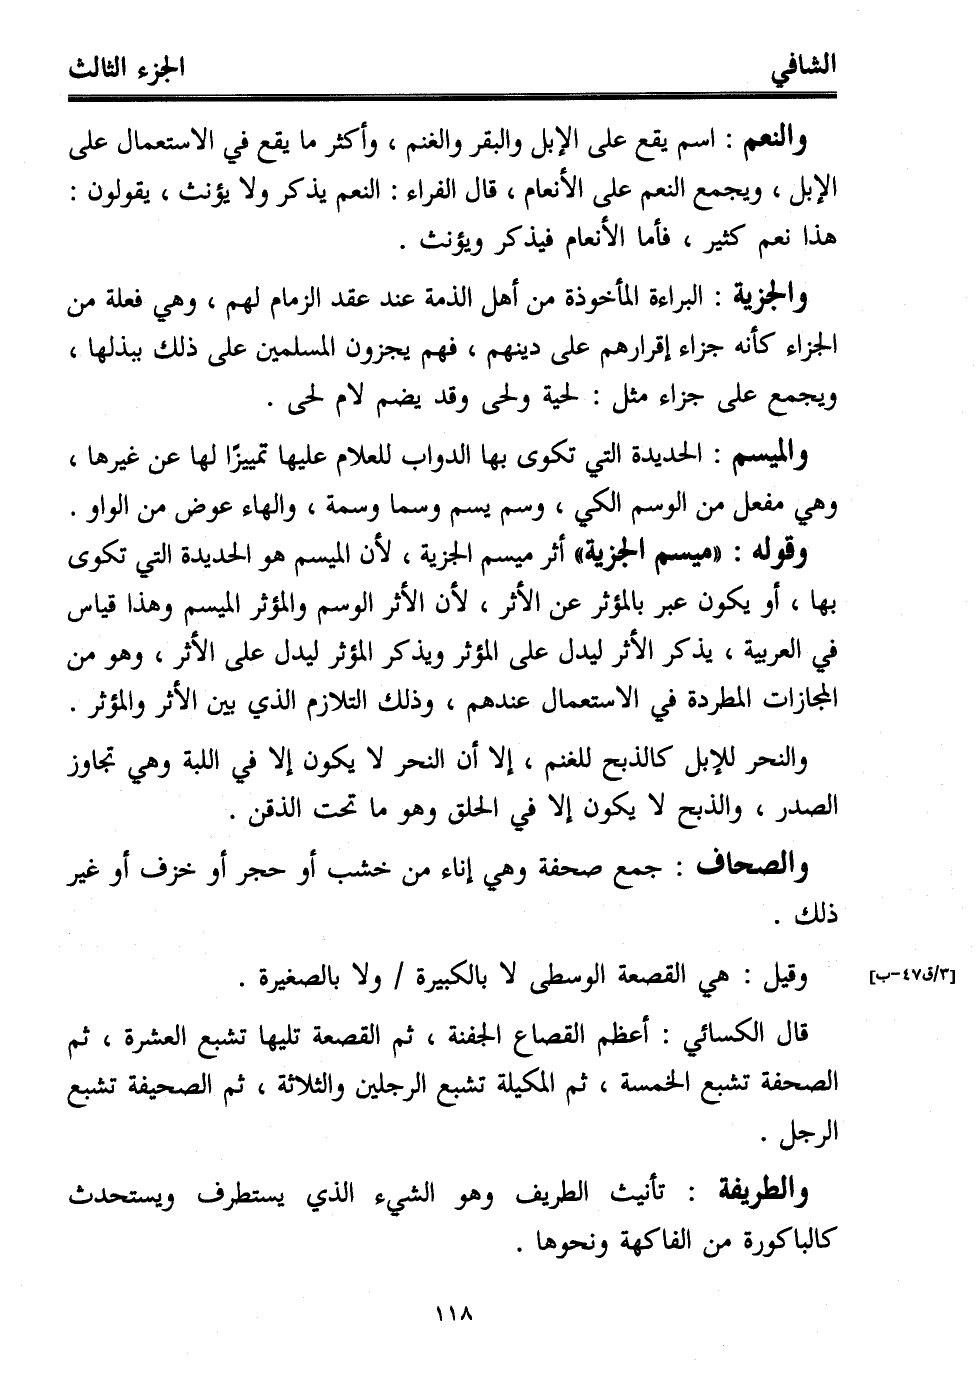 الشافي
الجزء الثالث
والنعم : اسم يقع على الإبل والبقر والغنم ، وأكثر ما يقع في الاستعمال على
الإبل ، ويجمع النعم على الأنعام ، قال الفراء : النعم يذكر ولا يؤنث ، يقولون :
هذا نعم كثير ، فأما الأنعام فيذكر ويؤنث .
والجزية : البراءة المأخوذة من أهل الذمة عند عقد الزمام لهم ، وهي فعلة من
الجزاء كأنه جزاء إقرارهم على دينهم ، فهم يجزون المسلمين على ذلك ببذلها ،
ويجمع على جزاء مثل : لحية ولحى وقد يضم لام لحى .
والميسم : الحديدة التي تكوى بها الدواب للعلام عليها تمييزًا لها عن غيرها ،
وهي مفعل من الوسم الكي ، وسم يسم وسما وسمة ، والهاء عوض من الواو .
وقوله : «ميسم الجزية» أثر ميسم الجزية ، لأن الميسم هو الحديدة التي تكوى
بها ، أو يكون عبر بالمؤثر عن الأثر ، لأن الأثر الوسم والمؤثر الميسم وهذا قياس
في العربية ، يذكر الأثر ليدل على المؤثر ويذكر المؤثر ليدل على الأثر ، وهو من
المجازات المطردة في الاستعمال عندهم ، وذلك التلازم الذي بين الأثر والمؤثر .
والنحر للإبل كالذبح للغنم ، إلا أن النحر لا يكون إلا في اللبة وهي تجاوز
الصدر ، والذبح لا يكون إلا في الحلق وهو ما تحت الذقن .
والصحاف : جمع صحفة وهي إناء من خشب أو حجر أو خزف أو غير
ذلك .
وقيل : هي القصعة الوسطى لا بالكبيرة / ولا بالصغيرة .
[٣/ق٤٧-ب]
قال الكسائي : أعظم القصاع الجفنة ، ثم القصعة تليها تشبع العشرة ، ثم
الصحفة تشبع الخمسة ، ثم المكيلة تشبع الرجلين والثلاثة ، ثم الصحيفة تشبع
الرجل .
والطريفة : تأنيث الطريف وهو الشيء الذي يستطرف ويستحدث
كالباكورة من الفاكهة ونحوها .
١١٨